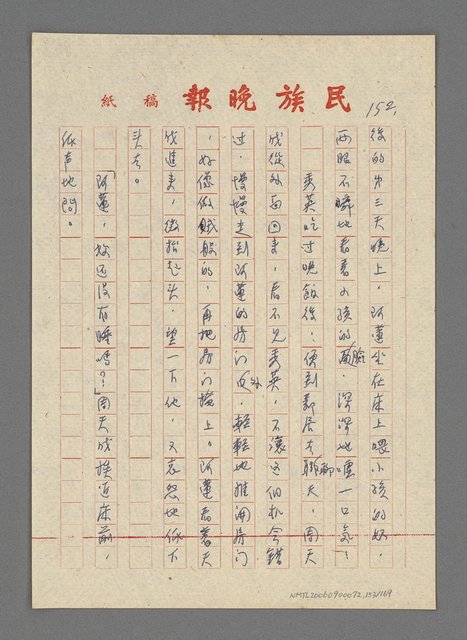 民族晚報 稿紙
152.
後的第三天晚上，阿蓮坐在床上喂小孩的奶，
兩眼不瞬地看着小孩的臉，深深地嘆一口氣，
秀英吃过晚飯後，便到鄰居去聊天，周天
成從外面回来，看不見秀英，不讓这個机会錯
过，慢慢走到阿蓮的房门外，輕輕地推開房门
，好像做贼般的，再把房门掩上。阿蓮看着天
成進来，微抬起头，望一下他，又哀怨地低下
头去。
「阿蓮，妳还沒有睡嗎？」周天成挨近床前，
低声地問。
NMTL20060900092,153/169